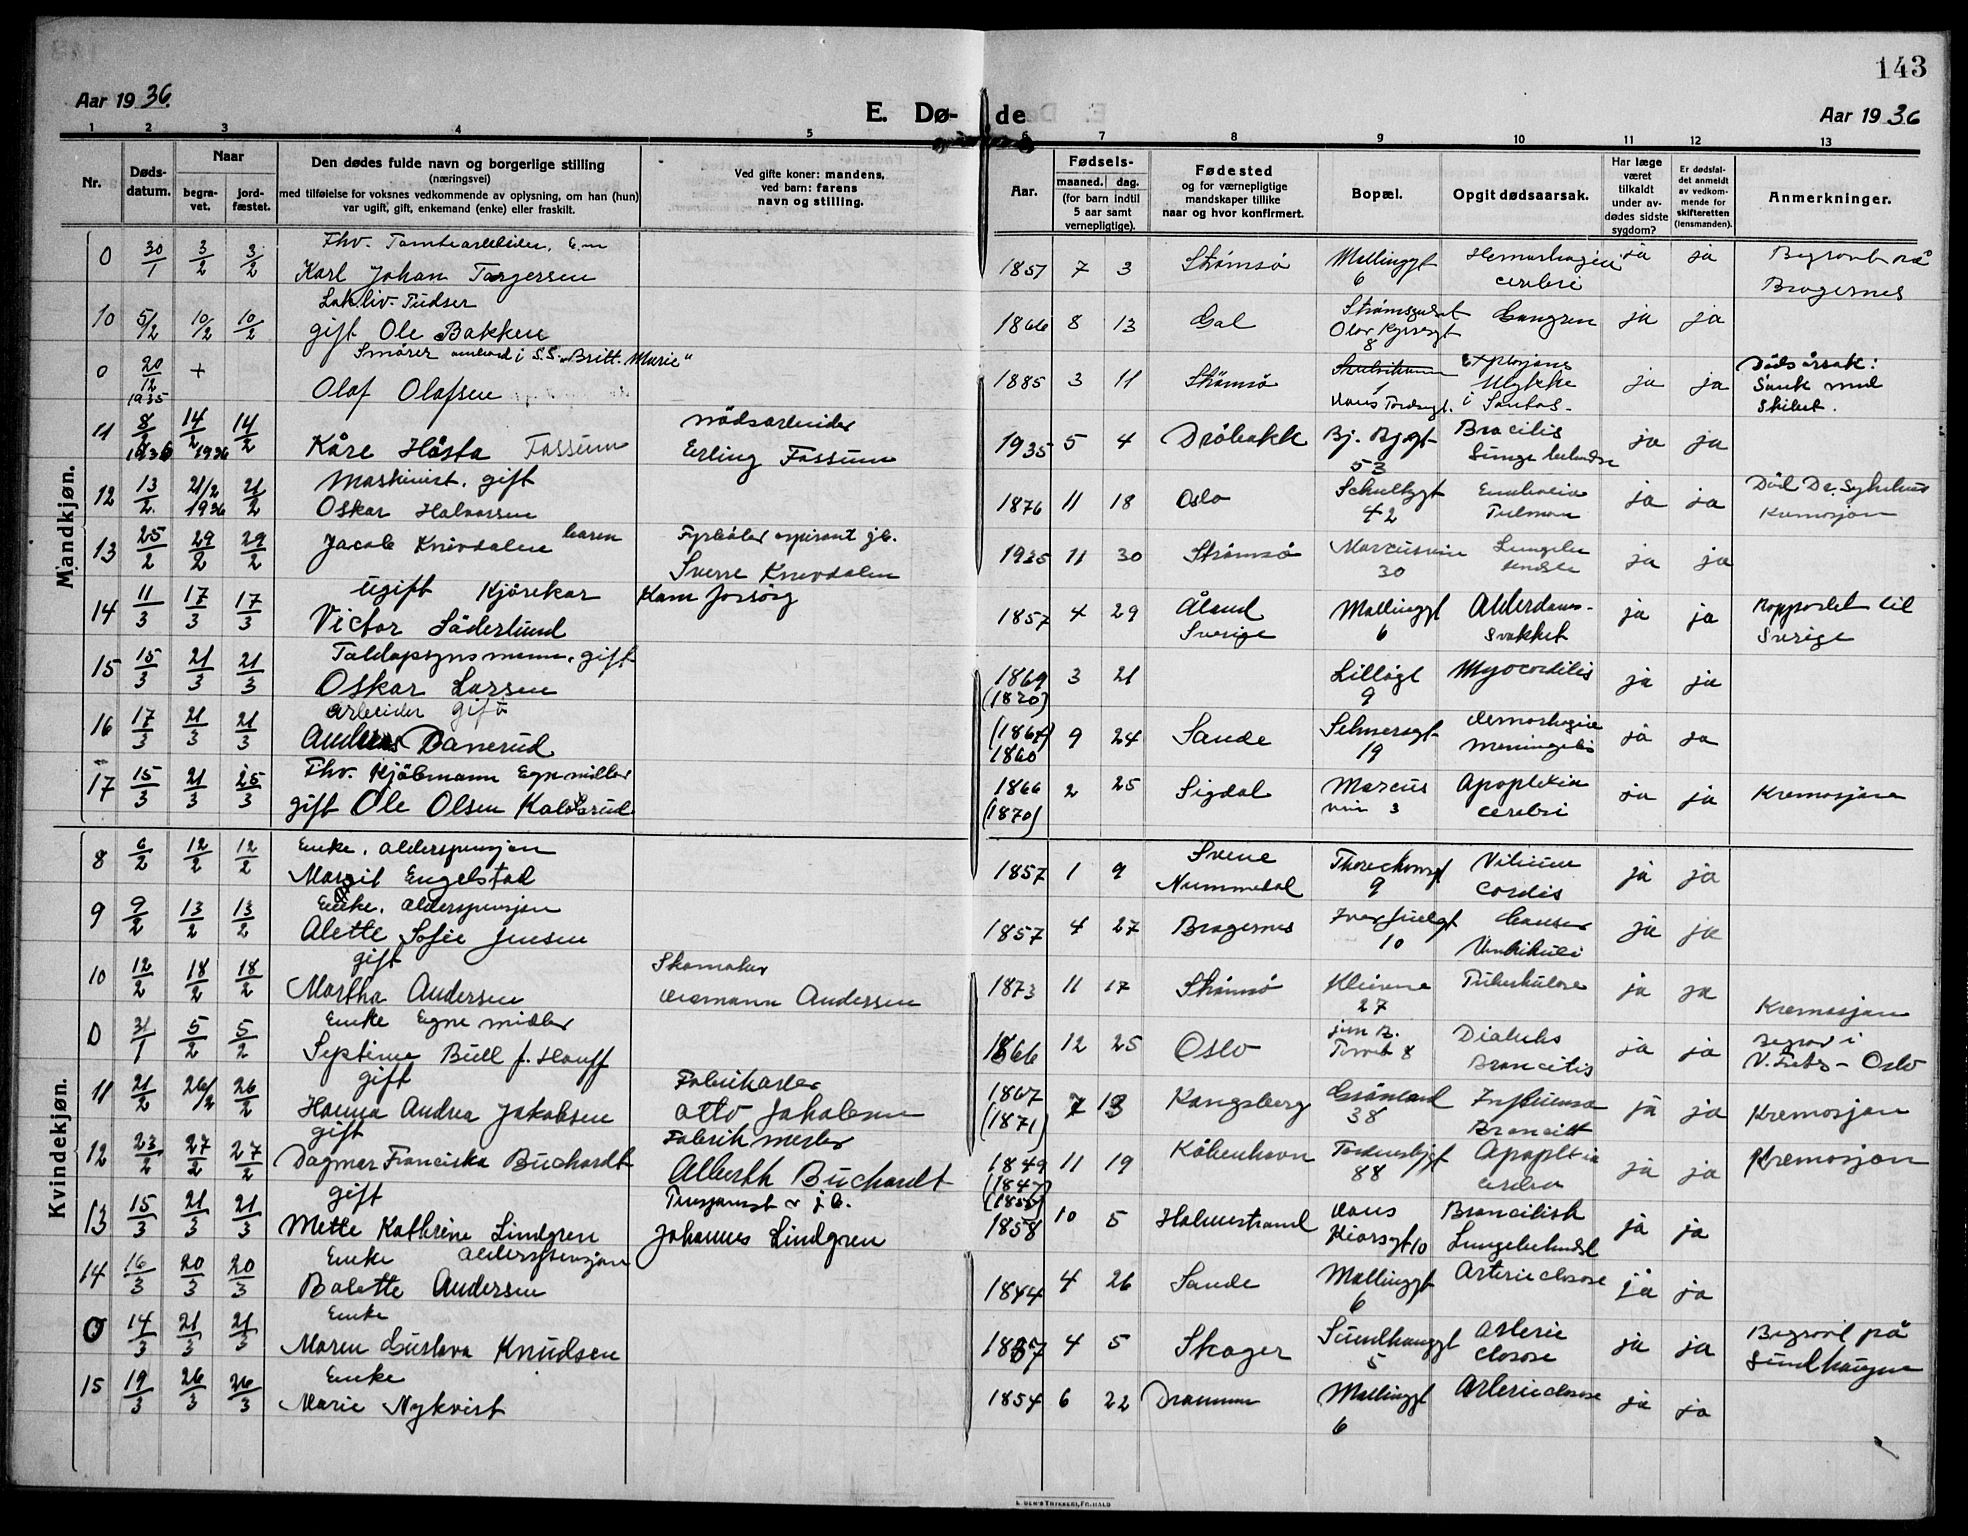 143
Aar 1936.
E. Dø-
de
Aar 1936
1 2 3 4 5 6 7 8 9 10 11 12 13
Nr.
Døds-
datum.
Naar
begra-
vet.
jord-
fæstet.
Den dødes fulde navn og borgerlige stilling
(næringsvei)
med tilføielse for voksnes vedkommende av oplysning, om han (hun)
var ugift, gift, enkemand (enke) eller fraskilt.
Ved gifte koner: mandens,
ved barn: farens
navn og stilling.
Aar.
Fødsels-
maaned. dag.
(for barn indtil
5 aar samt
vernepligtige).
Fødested
og for værnepligtige
mandskaper tillike
naar og hvor konfirmert.
Bopæl.
Opgit dødsaarsak.
Har læge
været
tilkaldt
under av-
dødes sidste
sygdom?
Er dødsfal-
det anmeldt
av vedkom-
mende for
skifteretten
(lensmanden).
Anmerkninger.
Mandkjøn.
0 30/1 3/2 3/2 Fhv.
Karl Johan Torgersen
1857 7 3 Strømsø Møllingt 6 Hemorhagia cerebri ja ja Begravet på Bragernes
10 5/2 10/2 10/2
gift Ole Bakken
1866 8 13 Gol Strømsgodset Olav Kyrresgt 8 Gangren ja ja
0 20/12 1935 + Smører ombord i S.S. „Britt. Marie"
Olaf Olafsen
1885 3 11 Strømsø Hans Tordsgt. 1 Explosjons Ulykke i Santos - ja ja Dødsårsak: Sank med Skibet.
11 8/2 1936 14/2 1936 14/2
Kåre Håsta Fossum
nødsarbeider
Erling Fossum
1935 5 4 Drøbakk Bj. Bjgt 53 ja ja
12 13/2. 21/2 1936 21/2 Maskinist. gift
Oskar Halvorsen
1876 11 18 Oslo Schultzgt 42 ja ja Død Dr. Sykehus Kremasjon
13 25/2 29/2 29/2
Jacob Knivdalen baren
Fyrbøter aspirant jb.
Sverre Knevdalen
1935 11 30 Strømsø 30 ja ja
14 11/3 17/3 17/3 ugift Kjørekar
Victor Söderlund
1857 4 29 Åland Sverige Møllingt 6 Alderdoms- svakhet ja ja Rapportet til Sverige
15 15/3 21/3 21/3 Toldopsynsmann, gift
Oskar Larsen
1869 (1870) 3 21 Lilløgt 9 Myocarditis ja ja
16 17/3 21/3 21/3 arbeider gift
Andreas Danerud
(1864) 1860 9 24 Sande Selmersgt 19 ja ja
17 15/3 21/3 25/3 Fhv. Kjøbmann Egne midler
gift Ole Olsen Kaldsrud
1866 (1870) 2 25 Sigdal Marcus 3 Apoplexia cerebri ja ja Kremasjon
Kvindekjøn.
8 6/2 12/2 12/2 Enke. alderspensjon
Margit Engelstad
1857 1 9 Svene Nummedal 9 Vitium Cordis ja ja
9 9/2 13/2 13/2 Enke. alderspensjon
Alette Sofie Jensen
1857 4 27 Bragernes Iver Juelsgt 10 Cancer Ventrikuli ja ja
10 12/2 18/2 18/2 gift
Martha Andersen
Skomaker
Hermann Andersen
1873 11 17 Strømsø Kleivene 27 Tuberkulose ja ja Kremasjon
0 31/1 5/2 5/2 Enke Egne midler
Septime Bull f. Hauff
1866 12 25 Oslo Torvet 8 Diabetes Broncitis ja ja Begrav i V. Frels - Oslo
11 21/2 26/2 26/2 gift
Hanna Andrea Jakobsen
Fabrikarb
Otto Jakobsen
1867 (1871) 7 13 Kongsberg Grønland 38 Influensa Broncitt ja ja Kremasjon
12 23/2 27/2 27/2 gift
Dagmar Franciska Buchardt
Fabrikmester
Alberth Buchardt
1849 (1847) 11 19 København 88 Apoplexia cerebri ja ja Kremasjon
13 15/3 21/3 21/3 gift
Mette Kathrine Lindgren
Johannes Lindgren
1858 10 5 Holmestrand Hans Kiærsgt 10 Broncitisk Lungebetendt ja ja
14 16/3 20/3 20/3 Enke alderspensjon
Bolette Andersen
1844 4 26 Sande Møllingt 6 Arterieclosose ja ja
0 14/3 21/3 21/3 Enke
Maren Gustava Knudsen
1857 4 5 Skoger Sundhauggt 5 Arterie closose ja ja Begravet på Sundhaugen
15 19/3 26/3 26/3 Enke
Marie Nykvist
1854 6 22 Drammen Møllingt 6 Arterieclosose ja ja